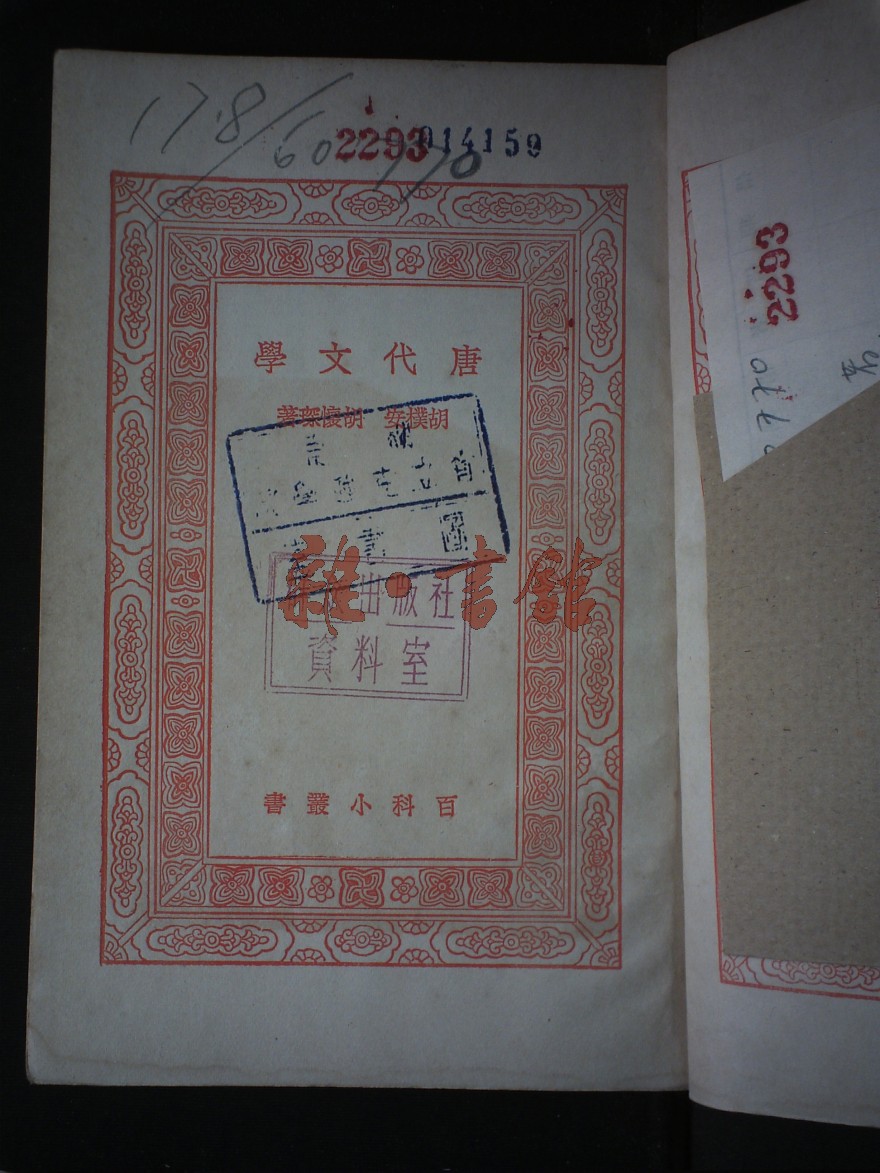 178/60770
2293
014159
唐代文學
胡樸安 胡懷琛著
圖書
雜·書館
出版社
資料室
百科小叢書
2293